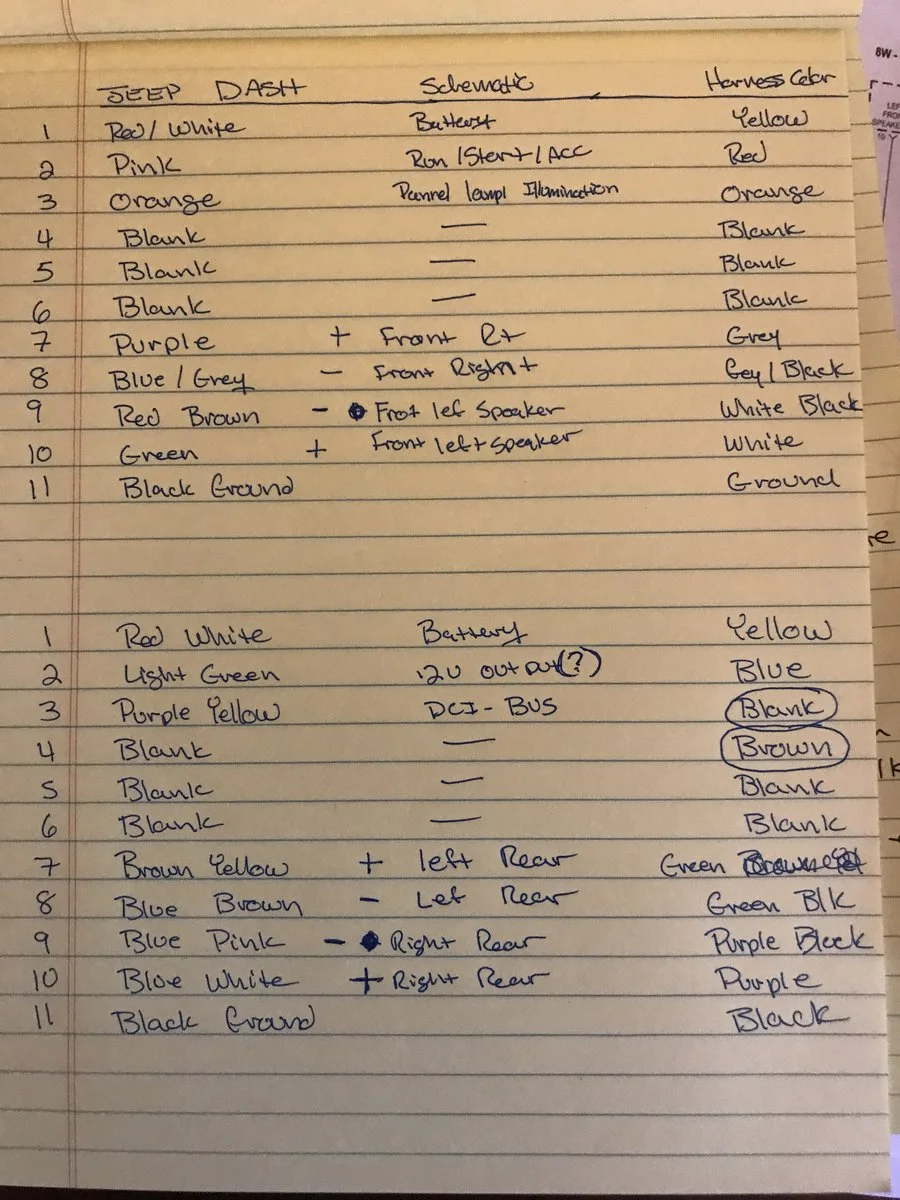 JEEP DASH Schematic Harness Color
1 Red/White Battery Yellow
2 Pink Run/Start/ACC Red
3 Orange Pannel lampl Illumination Orange
4 Blank — Blank
5 Blank — Blank
6 Blank — Blank
7 Purple + Front Rt Grey
8 Blue/Grey - Front Right Gey/Black
9 Red Brown - Frot lef Speaker White Black
10 Green + Front left speaker White
11 Black Ground Ground
1 Red White Battery Yellow
2 Light Green 12V out put(?) Blue
3 Purple Yellow DCI-BUS Blank
4 Blank — Brown
5 Blank — Blank
6 Blank — Blank
7 Brown Yellow + left Rear Green
8 Blue Brown - Lef Rear Green Blk
9 Blue Pink - Right Rear Purple Bleck
10 Bloe White + Right Rear Purple
11 Black Ground Black
8W-
LEF
FRO
SPEAKE
10 Y
re